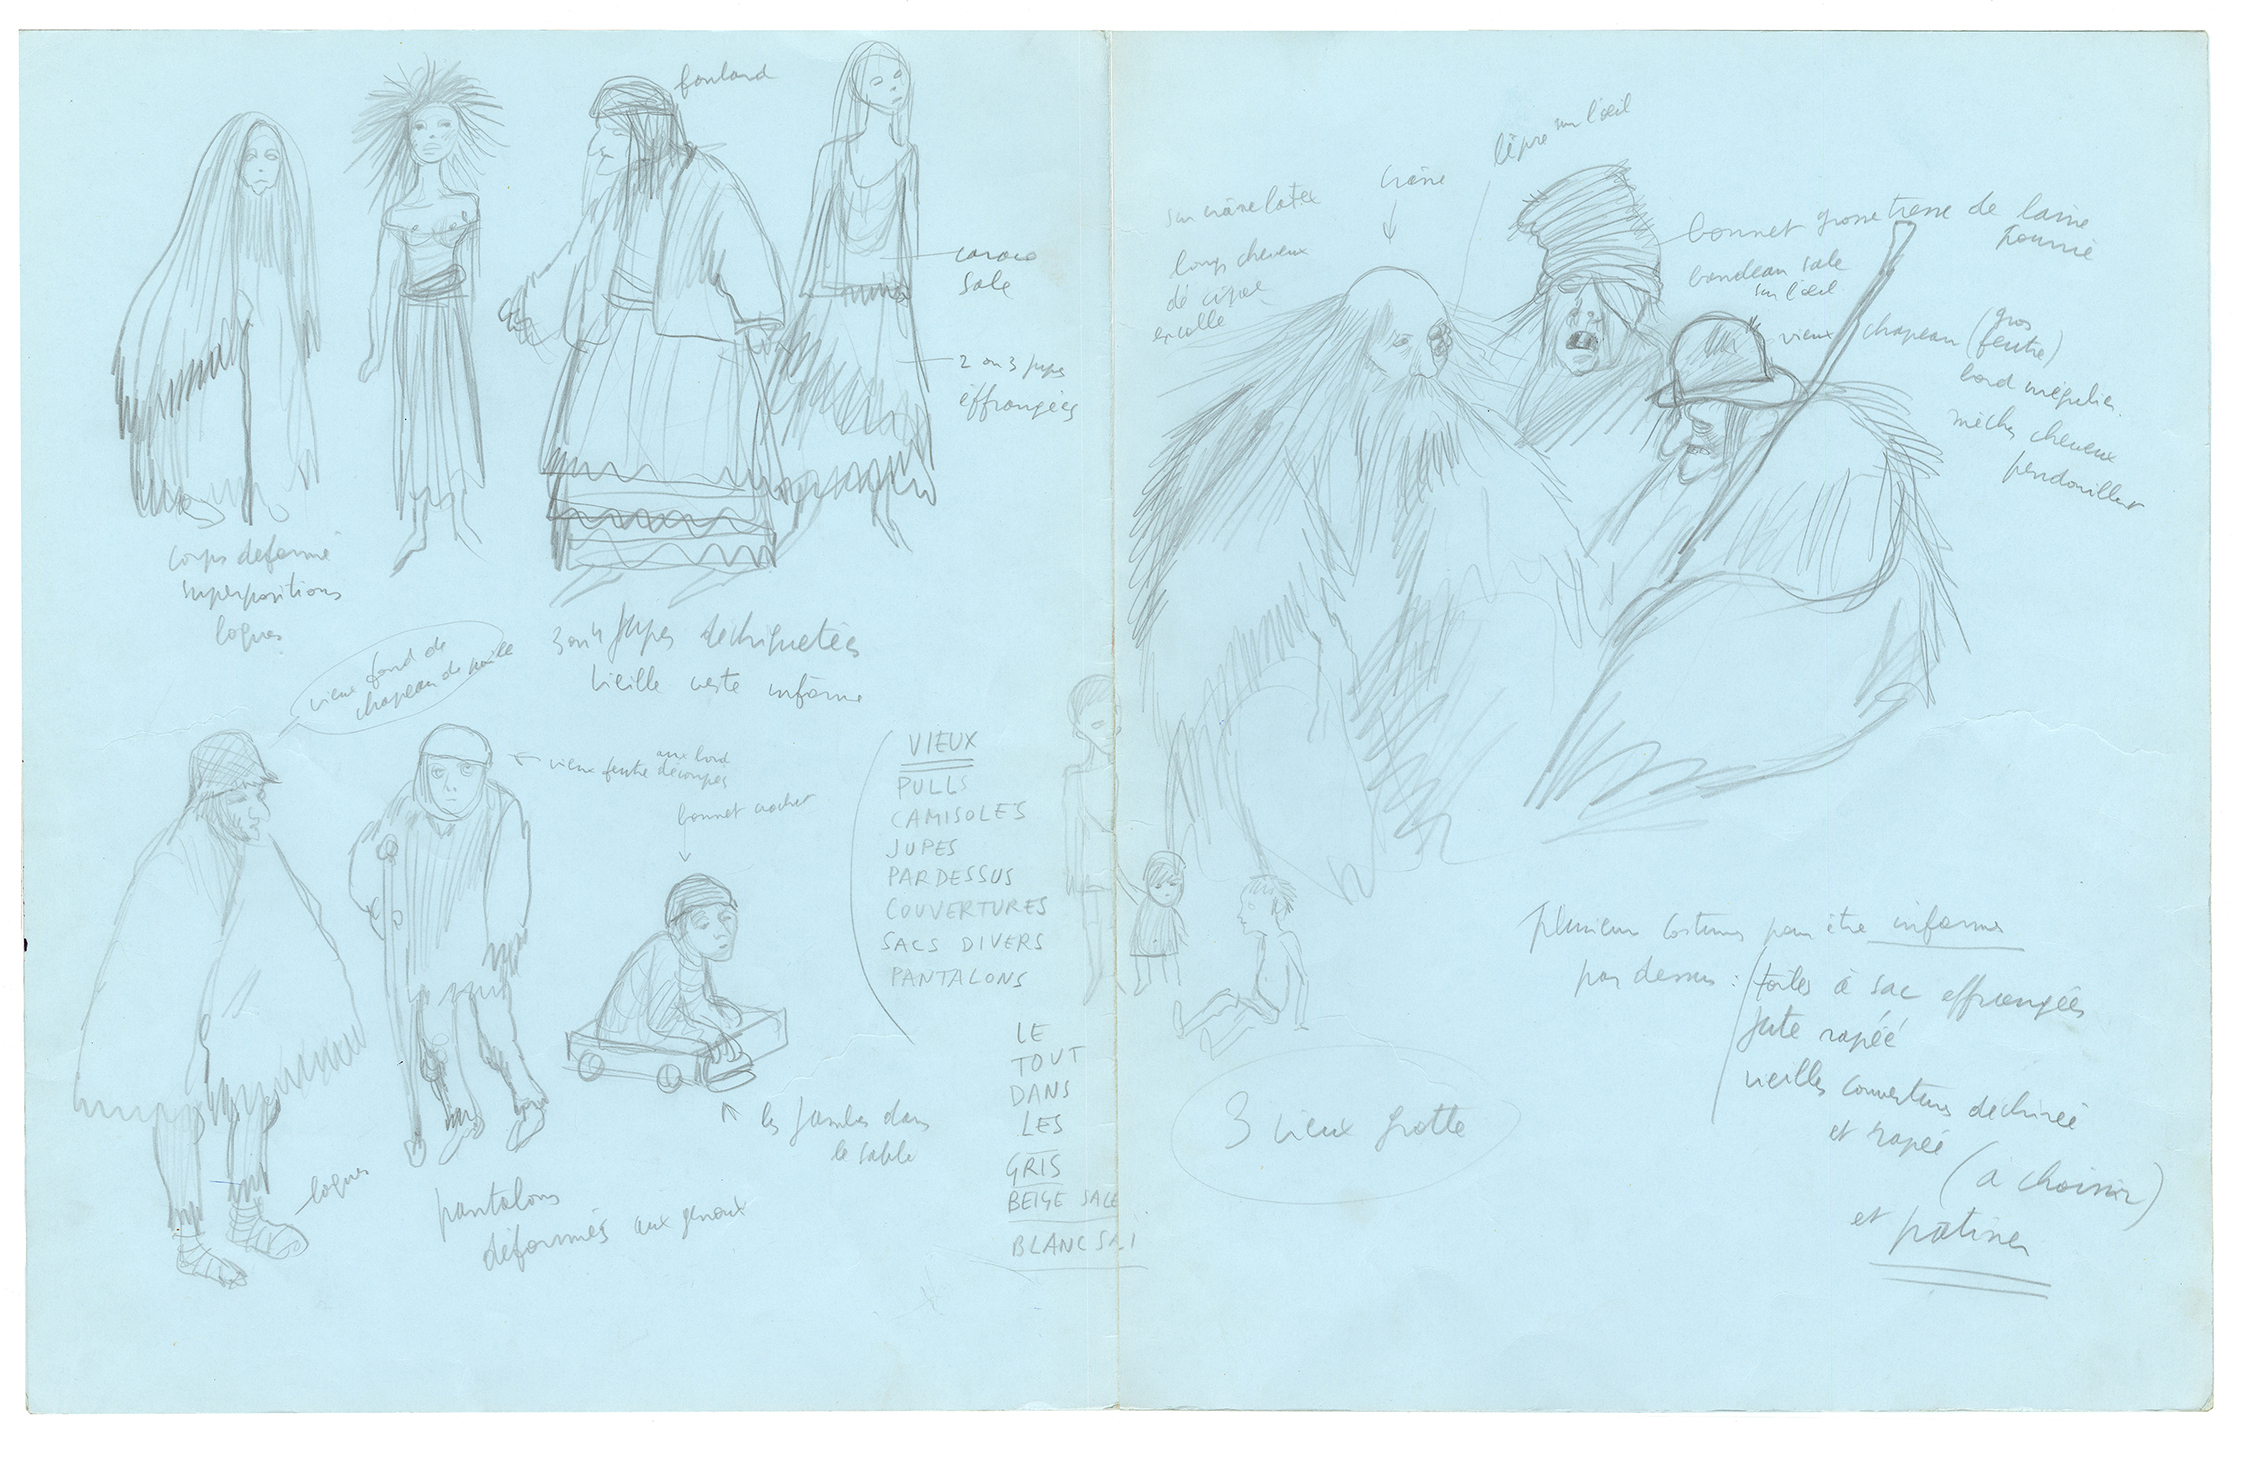 foulard
caraco
sale
2 ou 3 jupes
effrangées
corps déformé
superpositions
loques
3 ou 4 jupes dechiquetées
vieille veste informe
vieux fond de
chapeau de paille
vieux feutre aux bord
découpés
bonnet crochet
les jambes dans
le sable
loques
pantalons
déformés aux genoux
VIEUX
PULLS
CAMISOLES
JUPES
PARDESSUS
COUVERTURES
SACS DIVERS
PANTALONS
LE
TOUT
DANS
LES
GRIS
BEIGE SALE
BLANC SALI
sur crâne latex
longs cheveux
en colle
crâne
lèpre sur l'œil
bonnet grosse tresse de laine
bandeau sale
sur l'œil
vieux chapeau (gros
feutre)
bord irrégulier
mèches cheveux
pendouillent
3 vieux grotte
Plusieurs costumes pour être informe
par dessus : toiles à sac effrangées
jute rapéé
vieilles couvertures dechirée
et rapéé
(à choisir)
et patiner